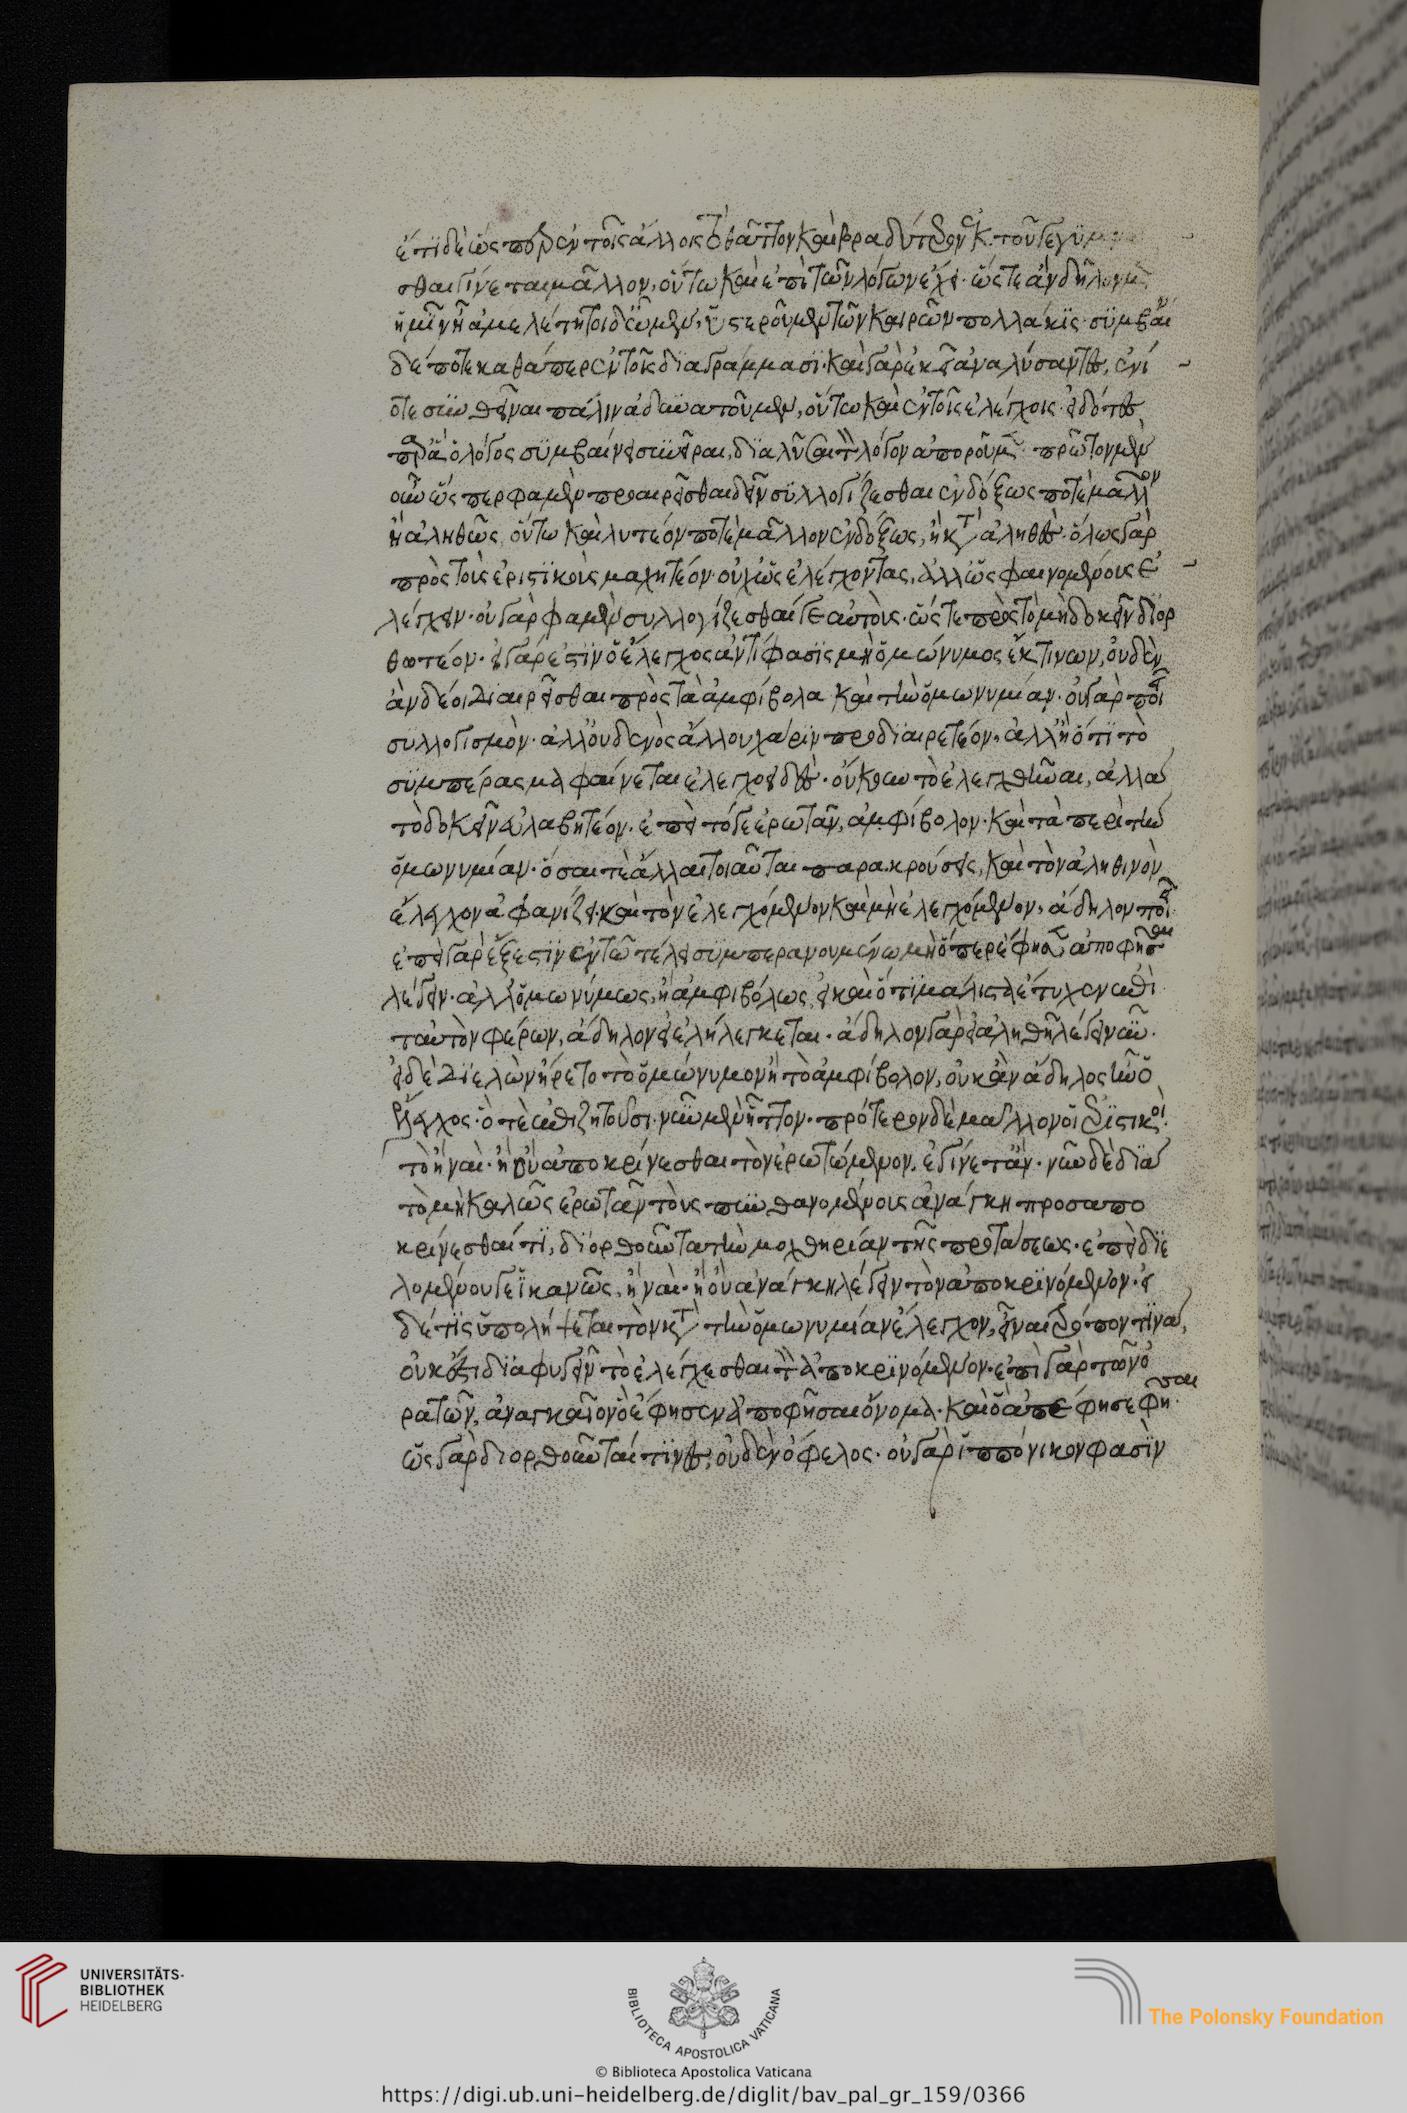 ἔτι δὲ ὥσπερ ἐν τοῖς ἄλλοις τὸ θᾶττον καὶ βραδύτερον ἐκ τοῦ γεγυμνα
σθαι γίνεται μᾶλλον, οὕτω καὶ ἐπὶ τῶν λόγων ἔχει· ὥστε ἂν δῆλον μὲν
ἡμῖν ἦ ἀμελέτητοι δὲ ὦμεν, ὑστεροῦμεν τῶν καιρῶν πολλάκις· συμβαίνει
δέ ποτε καθάπερ ἐν τοῖς διαγράμμασι· καὶ γὰρ ἐκεῖ ἀναλύσαντες, ἐνί
οτε συνθεῖναι πάλιν ἀδυνατοῦμεν, οὕτω καὶ ἐν τοῖς ἐλέγχοις· εἰδότες
παρ' ὃ ὁ λόγος συμβαίνει συνεῖραι, διαλῦσαι τὸν λόγον ἀποροῦμεν· πρῶτον μὲν
οὖν ὥσπερ φαμὲν προαιρεῖσθαι δεῖν συλλογίζεσθαι ἐνδόξως ποτὲ μᾶλλον
ἢ ἀληθῶς, οὕτω καὶ λυτέον ποτὲ μᾶλλον ἐνδόξως, ἢ κατὰ τἀληθές· ὅλως γὰρ
πρὸς τοὺς ἐριστικοὺς μαχητέον· οὐχ ὡς ἐλέγχοντας, ἀλλ' ὡς φαινομένους ἐ
λέγχειν· οὐ γὰρ φαμὲν συλλογίζεσθαί γε αὐτοὺς· ὥστε πρὸς τὸ μὴ δοκεῖν διορ
θωτέον· εἰ γάρ ἐστιν ὁ ἔλεγχος ἀντίφασις μὴ ὁμώνυμος ἔκ τινων, οὐδὲν
ἂν δέοι διαιρεῖσθαι πρὸς τὰ ἀμφίβολα καὶ τὴν ὁμωνυμίαν· οὐ γὰρ ποιεῖ
συλλογισμὸν· ἀλλ' οὐδενὸς ἄλλου χάριν προδιαιρετέον, ἀλλ' ἢ ὅτι τὸ
συμπέρασμα φαίνεται ἐλεγχοειδές· οὔκουν τὸ ἐλεγχθῆναι, ἀλλὰ
τὸ δοκεῖν εὐλαβητέον· ἐπεὶ τό γε ἐρωτᾶν, ἀμφίβολον· καὶ τὰ περὶ τὴν
ὁμωνυμίαν· ὅσαι τὲ ἄλλαι τοιαῦται παρακρούσεις, καὶ τὸν ἀληθινὸν
ἔλεγχον ἀφανίζει· καὶ τὸν ἐλεγχόμενον καὶ μὴ ἐλεγχόμενον, ἄδηλον ποιεῖ
ἐπεὶ γὰρ ἔξεστιν ἐν τῶ τέλει συμπερανουμένω μὴ ὅπερ ἔφησεν ἀποφῆσθαι
λέγειν· ἀλλ' ὁμωνύμως, ἢ ἀμφιβόλως, εἰ καὶ ὅτι μάλιστ' ἔτυχεν ἐπὶ
ταὐτὸν φέρων, ἄδηλον εἰ ἐλήλεγκται· ἄδηλον γὰρ εἰ ἀληθῆ λέγει νῦν·
εἰ δὲ διελὼν ἤρετο τὸ ὁμώνυμον ἢ τὸ ἀμφίβολον, οὐκ ἂν ἄδηλος ἦν ὁ
ἔλεγχος· ὅ τε ἐπιζητοῦσι νῦν μὲν ἧττον· πρότερον δὲ μᾶλλον οἱ ἐριστικοὶ·
τὸ ἢ ναὶ· ἢ οὐ ἀποκρίνεσθαι τὸν ἐρωτώμενον, ἐγίνετ' ἄν· νῦν δὲ διὰ
τὸ μὴ καλῶς ἐρωτᾶν τοὺς πυνθανομένους ἀνάγκη προσαπο
κρίνεσθαί τι, διορθοῦντα τὴν μοχθηρίαν τῆς προτάσεως· ἐπεὶ διε
λομένου γε ἱκανῶς, ἢ ναὶ· ἢ οὐ ἀνάγκη λέγειν τὸν ἀποκρινόμενον· εἰ
δέ τις ὑπολήψεται τὸν κατὰ τὴν ὁμωνυμίαν ἔλεγχον, εἶναι τρόπον τινὰ,
οὐκ ἔσται διαφυγεῖν τὸ ἐλέγχεσθαι τὸν ἀποκρινόμενον· ἐπὶ γὰρ τῶν ὁ
ρατῶν, ἀναγκαῖον ὃ ἔφησεν ἀποφῆσαι ὄνομα· καὶ ὃ ἀπέφησε φῆσαι·
ὡς γὰρ διορθοῦνταί τινες, οὐδὲν ὄφελος· οὐ γὰρ ἱππόνικον φασὶν
UNIVERSITÄTS-
BIBLIOTHEK
HEIDELBERG
BIBLIOTECA APOSTOLICA VATICANA
The Polonsky Foundation
© Biblioteca Apostolica Vaticana
https://digi.ub.uni-heidelberg.de/diglit/bav_pal_gr_159/0366